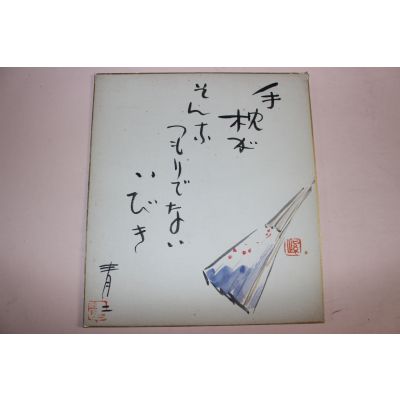 手枕が
そんな
つもりでない
いびき
青二